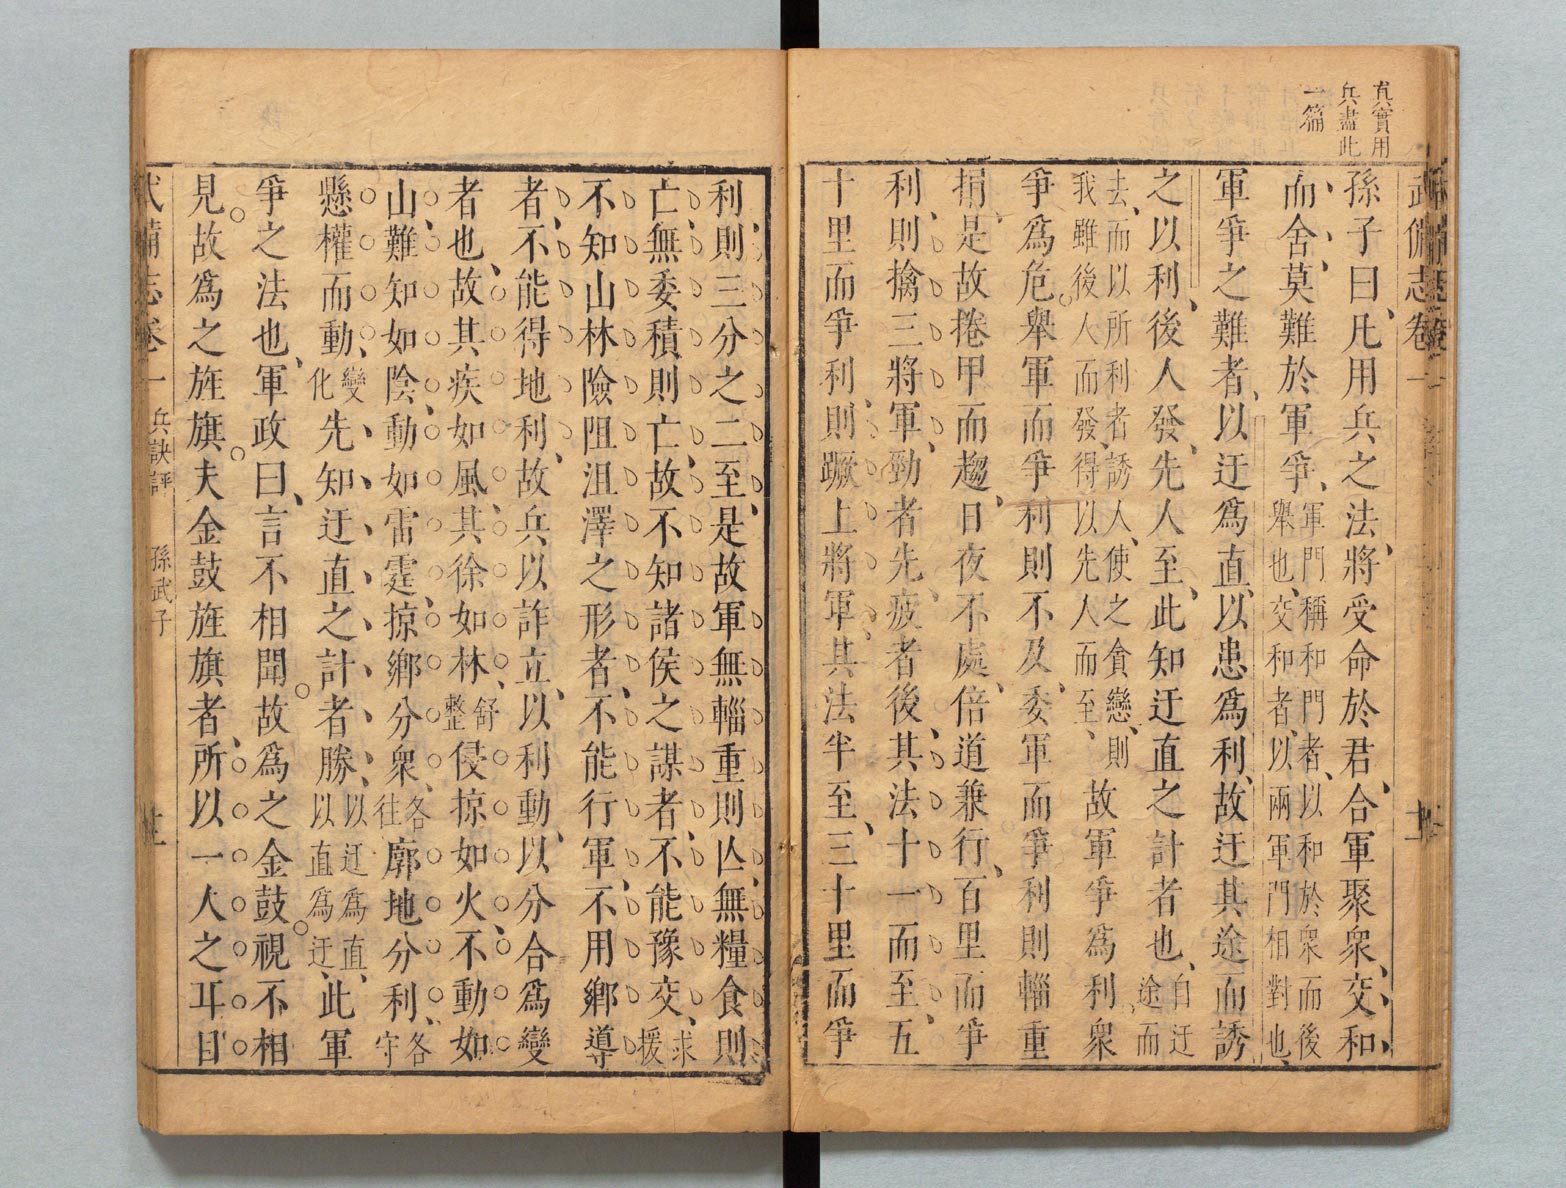 真實用
兵盡此
一篇
武備志卷一
孫子曰凡用兵之法將受命於君合軍聚衆交和
而舍莫難於軍爭軍門稱和門者以和於衆而後
舉也交和者以兩軍門相對也
軍爭之難者以迂爲直以患爲利故迂其途而誘
之以利後人發先人至此知迂直之計者也自迂
途而
去而以所利者誘人使之貪戀則
我雖後人而發得以先人而至故軍爭爲利衆
爭爲危舉軍而爭利則不及委軍而爭利則輜重
捐是故捲甲而趨日夜不處倍道兼行百里而爭
利則擒三將軍勁者先疲者後其法十一而至五
十里而爭利則蹶上將軍其法半至三十里而爭
利則三分之二至是故軍無輜重則亾無糧食則
亡無委積則亡故不知諸侯之謀者不能豫交求
援
不知山林險阻沮澤之形者不能行軍不用鄉導
者不能得地利故兵以詐立以利動以分合爲變
者也故其疾如風其徐如林舒
整侵掠如火不動如
山難知如陰動如雷霆掠鄉分衆各
往廓地分利各
守
懸權而動變
化先知迂直之計者勝以迂爲直
以直爲迂此軍
爭之法也軍政曰言不相聞故爲之金鼓視不相
見故爲之旌旗夫金鼓旌旗者所以一人之耳目
武備志卷一 兵訣評 孫武子